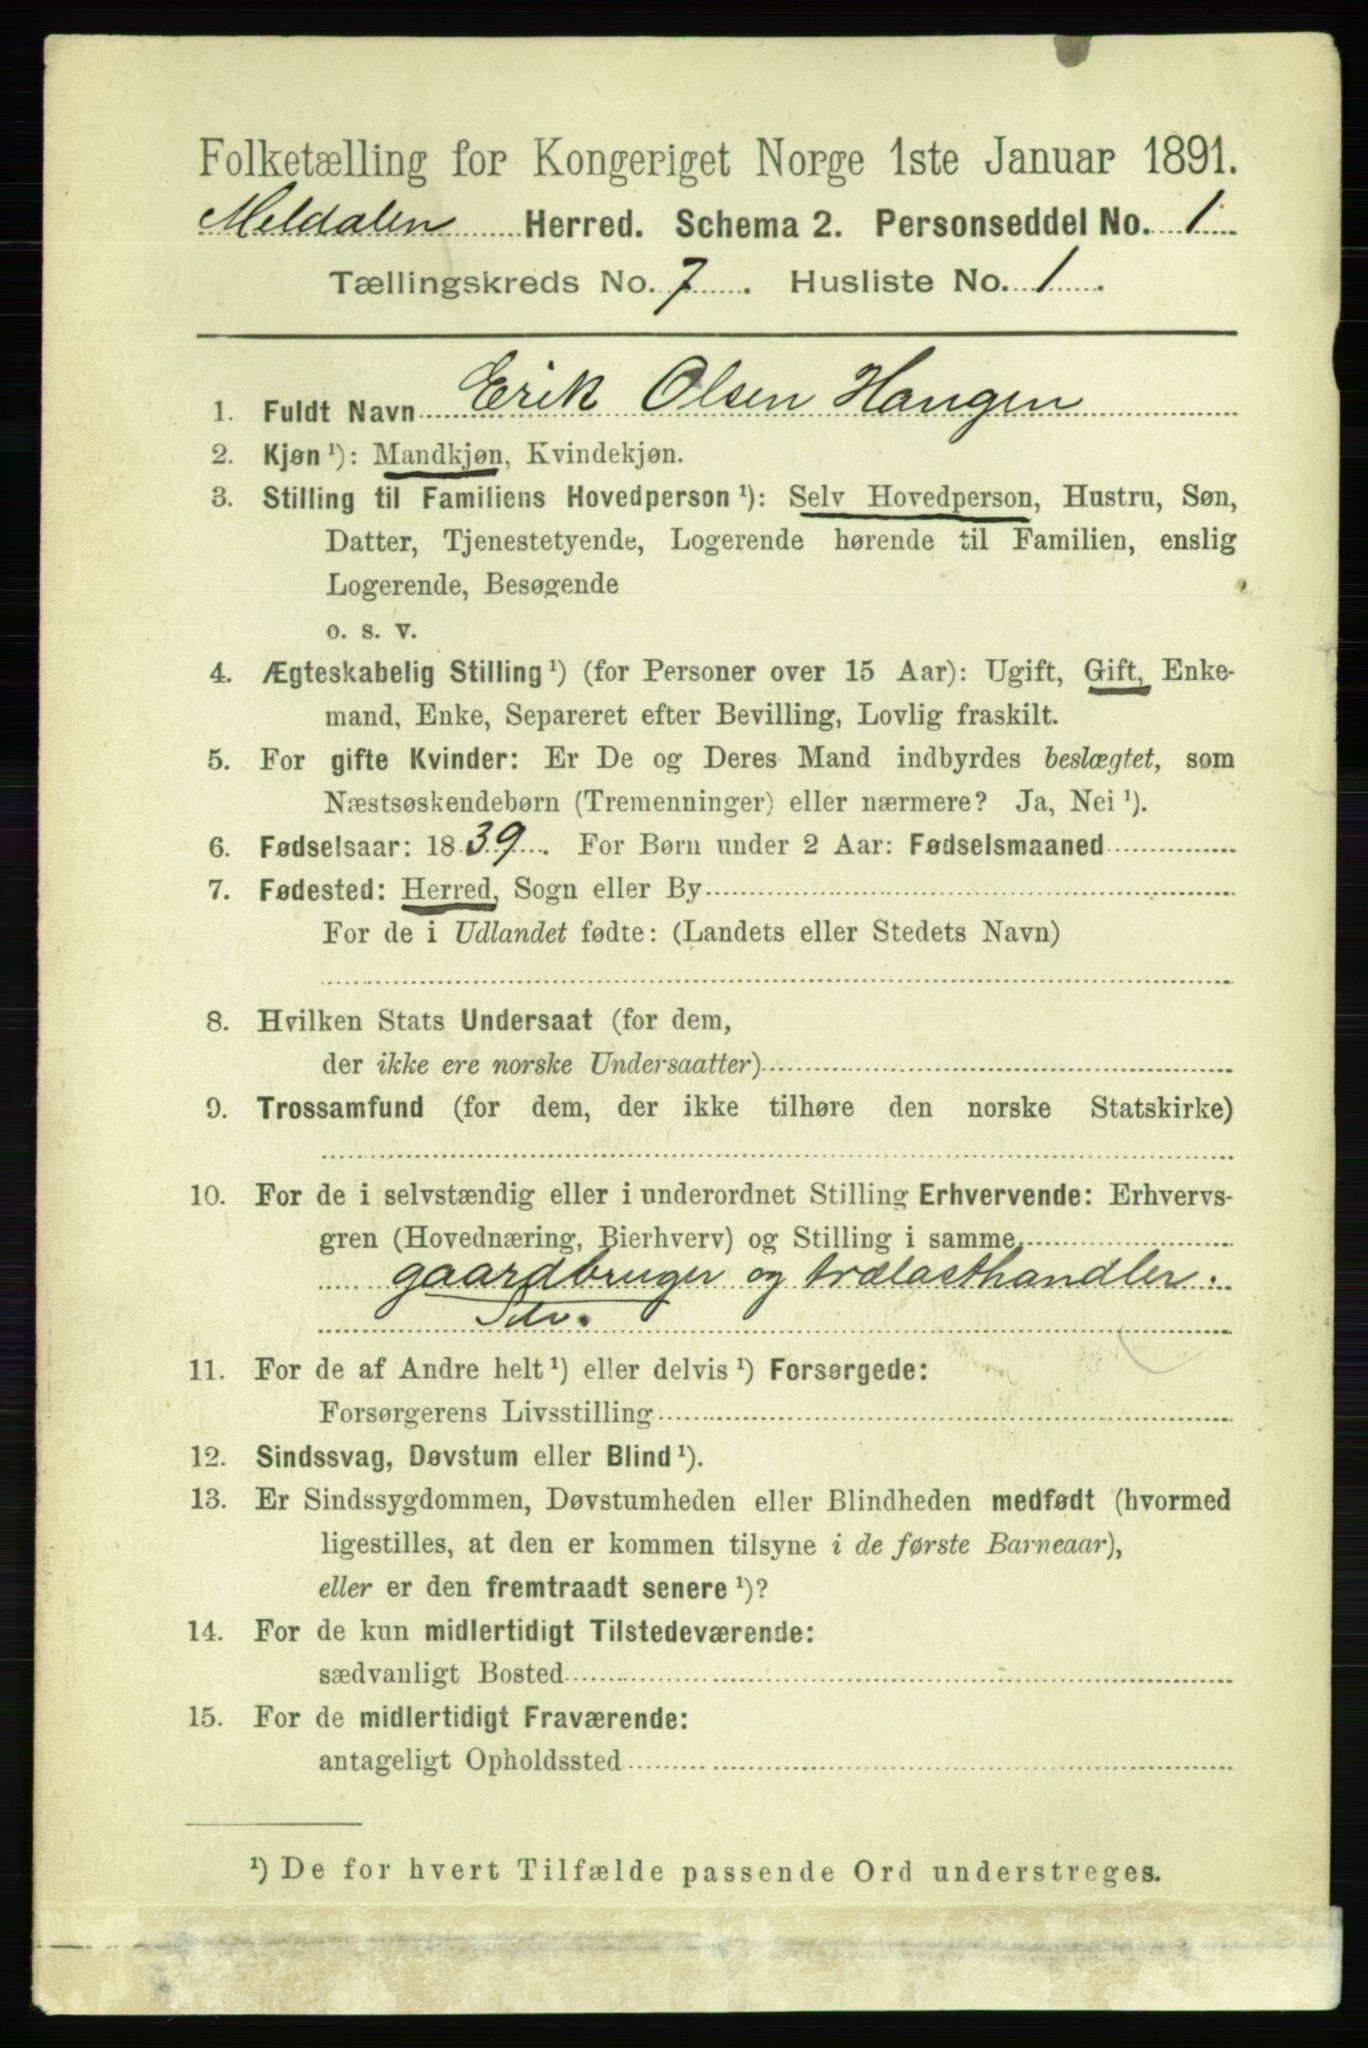 Folketælling for Kongeriget Norge 1ste Januar 1891.
Meldalen Herred. Schema 2. Personseddel No. 1
Tællingskreds No. 7. Husliste No. 1.
1. Fuldt Navn Erik Olsen Haugen
2. Kjøn ¹): Mandkjøn, Kvindekjøn.
3. Stilling til Familiens Hovedperson ¹): Selv Hovedperson, Hustru, Søn,
Datter, Tjenestetyende, Logerende hørende til Familien, enslig
Logerende, Besøgende
o. s. v.
4. Ægteskabelig Stilling ¹) (for Personer over 15 Aar): Ugift, Gift, Enke-
mand, Enke, Separeret efter Bevilling, Lovlig fraskilt.
5. For gifte Kvinder: Er De og Deres Mand indbyrdes beslægtet, som
Næstsøskendebørn (Tremenninger) eller nærmere? Ja, Nei ¹).
6. Fødselsaar: 1839. For Børn under 2 Aar: Fødselsmaaned
7. Fødested: Herred, Sogn eller By
For de i Udlandet fødte: (Landets eller Stedets Navn)
8. Hvilken Stats Undersaat (for dem,
der ikke ere norske Undersaatter)
9. Trossamfund (for dem, der ikke tilhøre den norske Statskirke)
10. For de i selvstændig eller i underordnet Stilling Erhvervende: Erhvervs-
gren (Hovednæring, Bierhverv) og Stilling i samme
gaardbruger og trælasthandler.
11. For de af Andre helt ¹) eller delvis ¹) Forsørgede:
Forsørgerens Livsstilling
12. Sindssvag, Døvstum eller Blind ¹).
13. Er Sindssygdommen, Døvstumheden eller Blindheden medfødt (hvormed
ligestilles, at den er kommen tilsyne i de første Barneaar),
eller er den fremtraadt senere ¹)?
14. For de kun midlertidigt Tilstedeværende:
sædvanligt Bosted
15. For de midlertidigt Fraværende:
antageligt Opholdssted
¹) De for hvert Tilfælde passende Ord understreges.